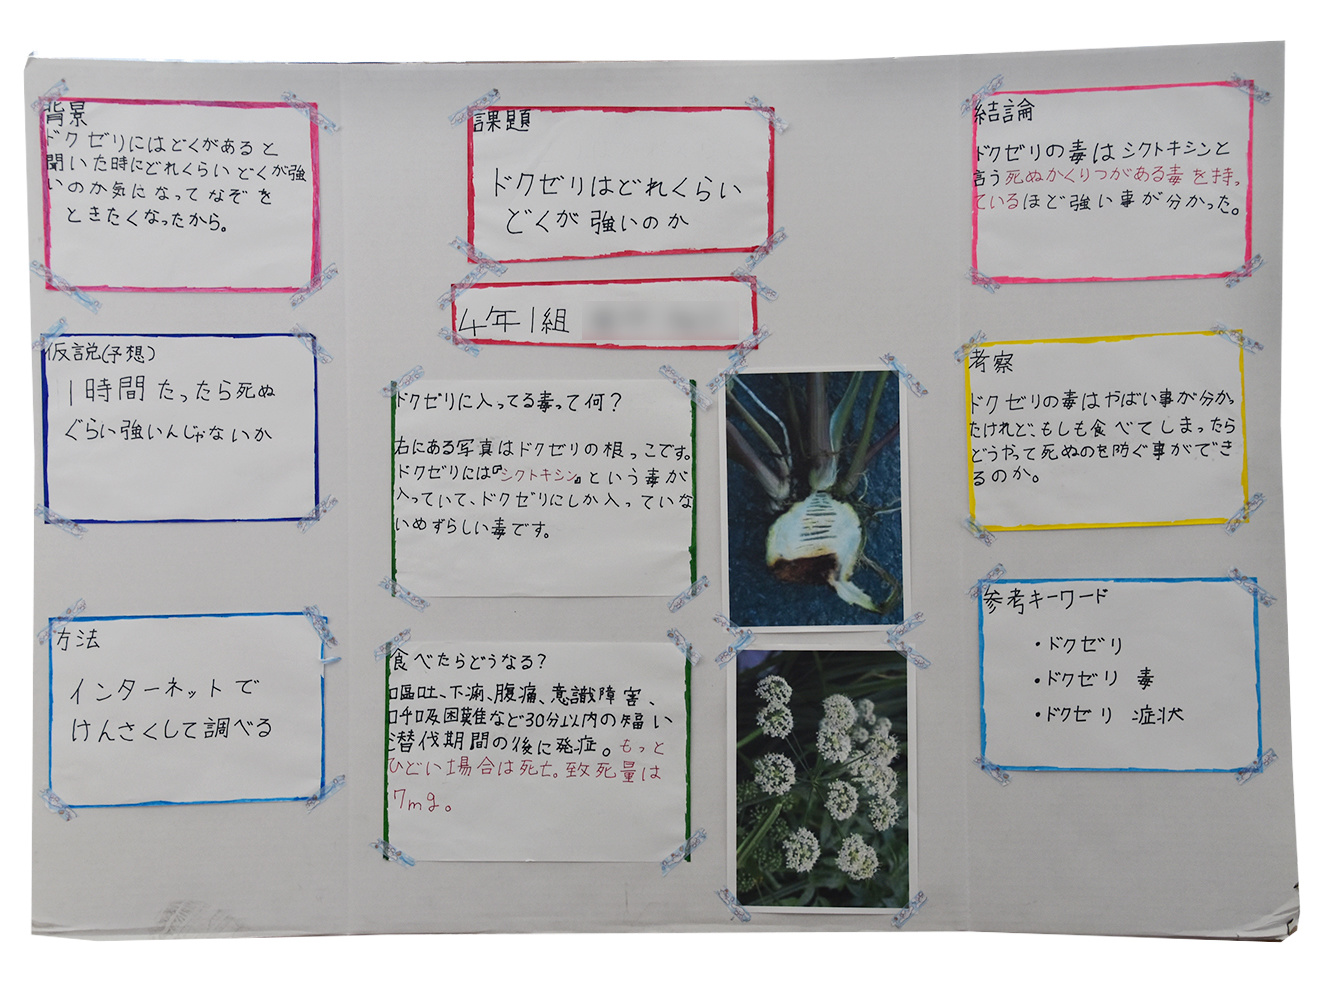 背景
ドクゼリにはどくがあると
聞いた時にどれくらいどくが強
いのか気になってなぞを
ときたくなったから。
仮説(予想)
1時間たったら死ぬ
ぐらい強いんじゃないか
方法
インターネットで
けんさくして調べる
課題
ドクゼリはどれくらい
どくが強いのか
4年1組
ドクゼリに入ってる毒って何?
右にある写真はドクゼリの根っこです。
ドクゼリには『シクトキシン』という毒が
入っていて、ドクゼリにしか入っていな
いめずらしい毒です。
食べたらどうなる?
嘔吐、下痢、腹痛、意識障害、
呼吸困難など30分以内の短い
潜伏期間の後に発症。もっと
ひどい場合は死亡。致死量は
7mg。
結論
ドクゼリの毒はシクトキシンと
言う死ぬかくりつがある毒を持っ
ているほど強い事が分かった。
考察
ドクゼリの毒はやばい事が分かっ
たけれど、もしも食べてしまったら
どうやって死ぬのを防ぐ事ができ
るのか。
参考キーワード
・ドクゼリ
・ドクゼリ 毒
・ドクゼリ 症状